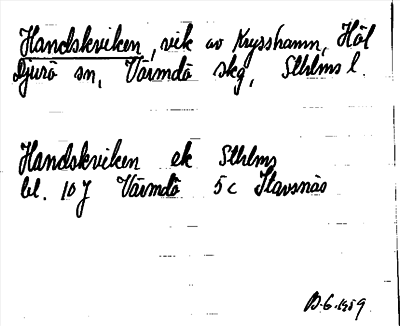 Handskviken, vik av Krysshamn, Höl
Djurö sn, Värmdö skg, Sthlms l.
Handskviken ek Sthlms
bl. 10 J Värmdö 5 c Stavsnäs
B.G. 1959